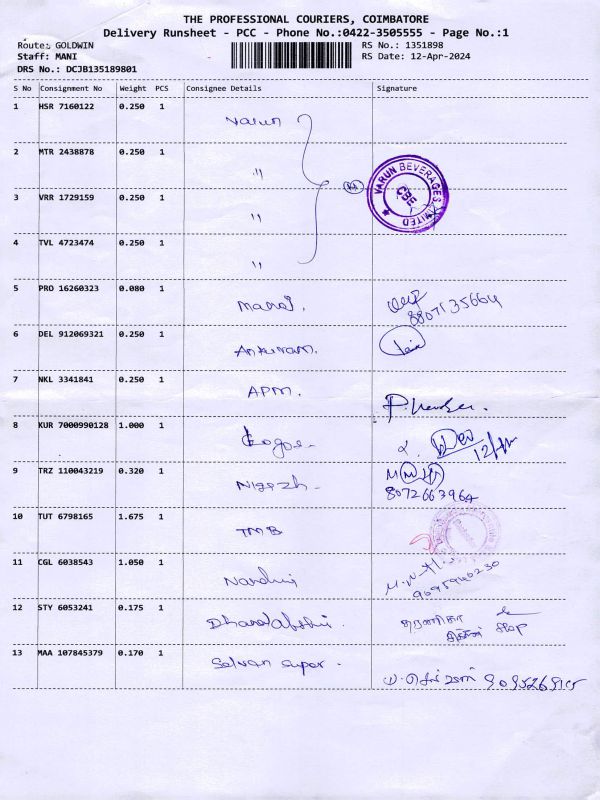 THE PROFESSIONAL COURIERS, COIMBATORE
Delivery Runsheet - PCC - Phone No.:0422-3505555 - Page No.:1
Route: GOLDWIN RS No.: 1351898
Staff: MANI RS Date: 12-Apr-2024
DRS No.: DCJB135189801
S No Consignment No Weight PCS Consignee Details Signature
1 HSR 7160122 0.250 1 Varun
2 MTR 2438878 0.250 1 "
VARUN BEVERAGES LIMITED
CBE
3 VRR 1729159 0.250 1 "
4 TVL 4723474 0.250 1 "
5 PRO 16260323 0.080 1 Manoj.
8807135664
6 DEL 912069321 0.250 1 Ankuram.
7 NKL 3341841 0.250 1 APM.
8 KUR 7000990128 1.000 1
9 TRZ 110043219 0.320 1
8072663964
10 TUT 6798165 1.675 1 TMB
11 CGL 6038543 1.050 1
12 STY 6053241 0.175 1
13 MAA 107845379 0.170 1 Selvan super.